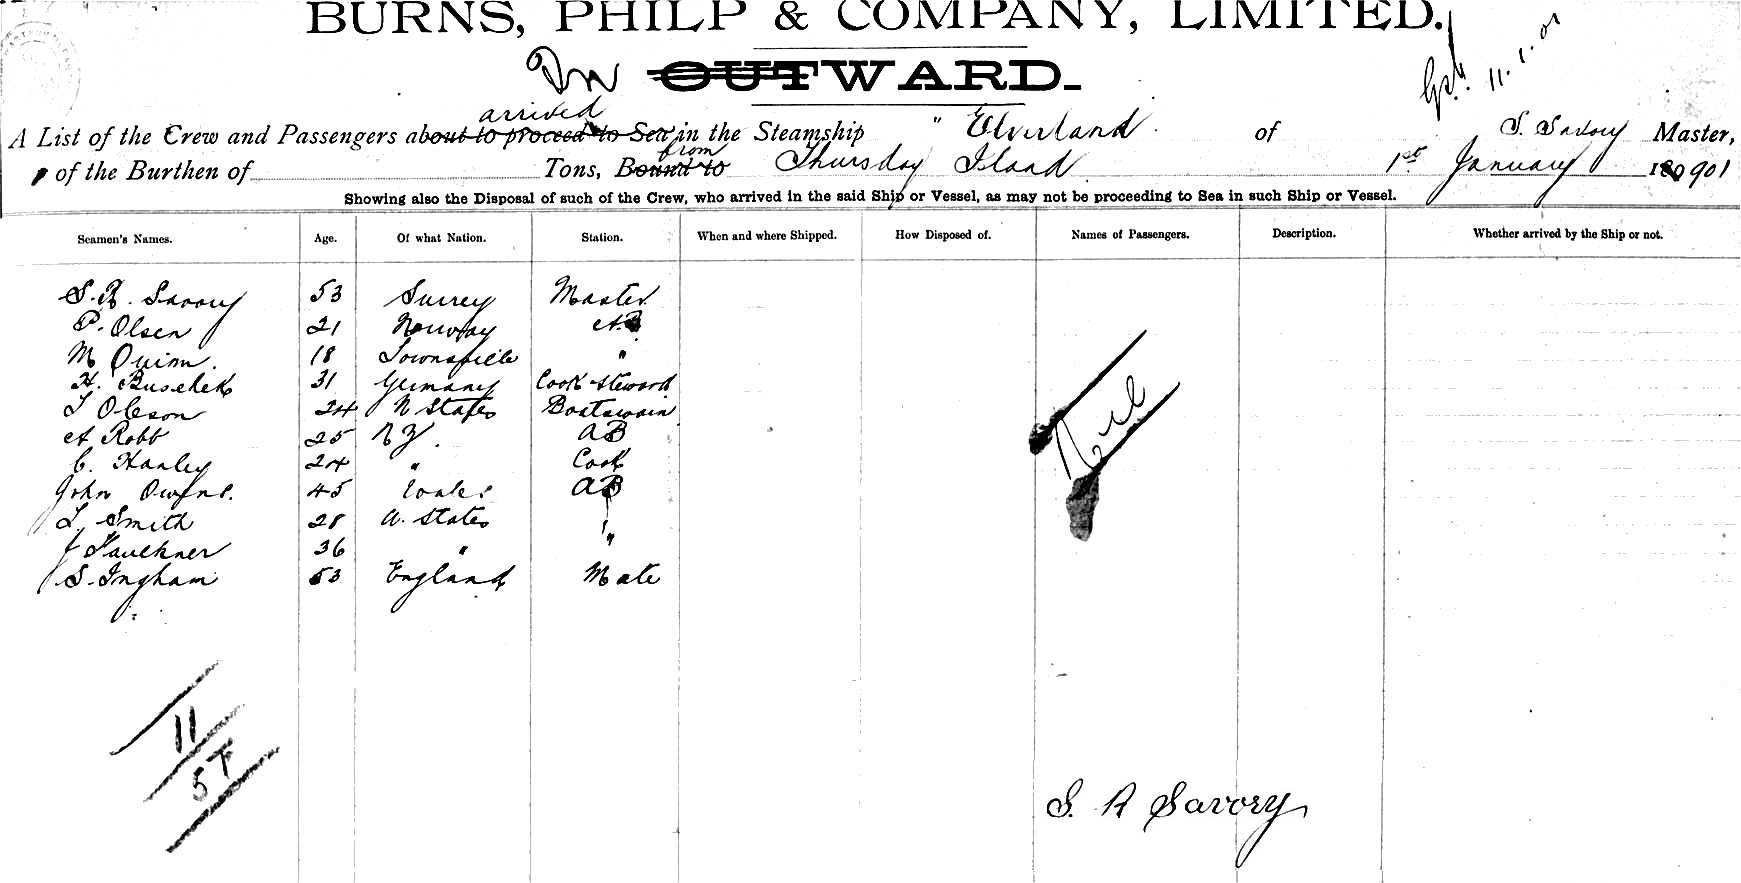 BURNS, PHILP & COMPANY, LIMITED.
In OUTWARD.
11.1.01
arrived
A List of the Crew and Passengers about to proceed to Sea in the Steamship " Elverland of S. Savory Master,
from
of the Burthen of Tons, Bound to Thursday Island 1st January 1901
Showing also the Disposal of such of the Crew, who arrived in the said Ship or Vessel, as may not be proceeding to Sea in such Ship or Vessel.
Seamen's Names. Age. Of what Nation. Station. When and where Shipped. How Disposed of. Names of Passengers. Description. Whether arrived by the Ship or not.
S. R. Savory 53 Surrey Master
P. Olsen 21 Norway A.B
M Quinn. 18 Townsville "
H. Buschek 31 Germany Cook-steward
T Oleson 24 U States Boatswain
A Robb 25 N Z. AB
C. Hanley 24 " Cook
John Owens. 45 Wales AB
T. Smith 28 U. States "
J Faulkner 36 " "
S. Ingham 53 England Mate
Nil
11
57
S. R Savory